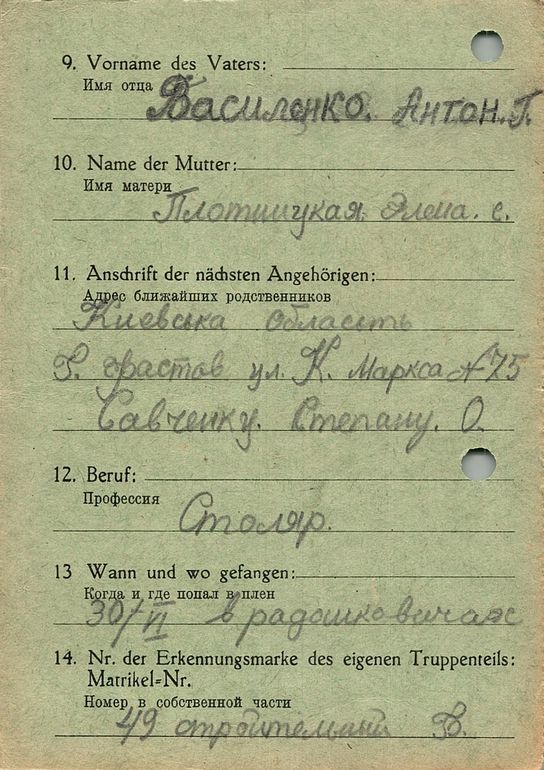 9. Vorname des Vaters:
Имя отца
Василенко. Антон. Г.
10. Name der Mutter:
Имя матери
Плотницкая Элена. с.
11. Anschrift der nächsten Angehörigen:
Адрес ближайших родственников
Киевська область
Г. Фастов ул. К. Маркса N 75
Савченку. Степану. О.
12. Beruf:
Профессия
Столяр.
13 Wann und wo gefangen:
Когда и где попал в плен
30/VI в радошковичах
14. Nr. der Erkennungsmarke des eigenen Truppenteils:
Matrikel=Nr.
Номер в собственной части
49 Б.